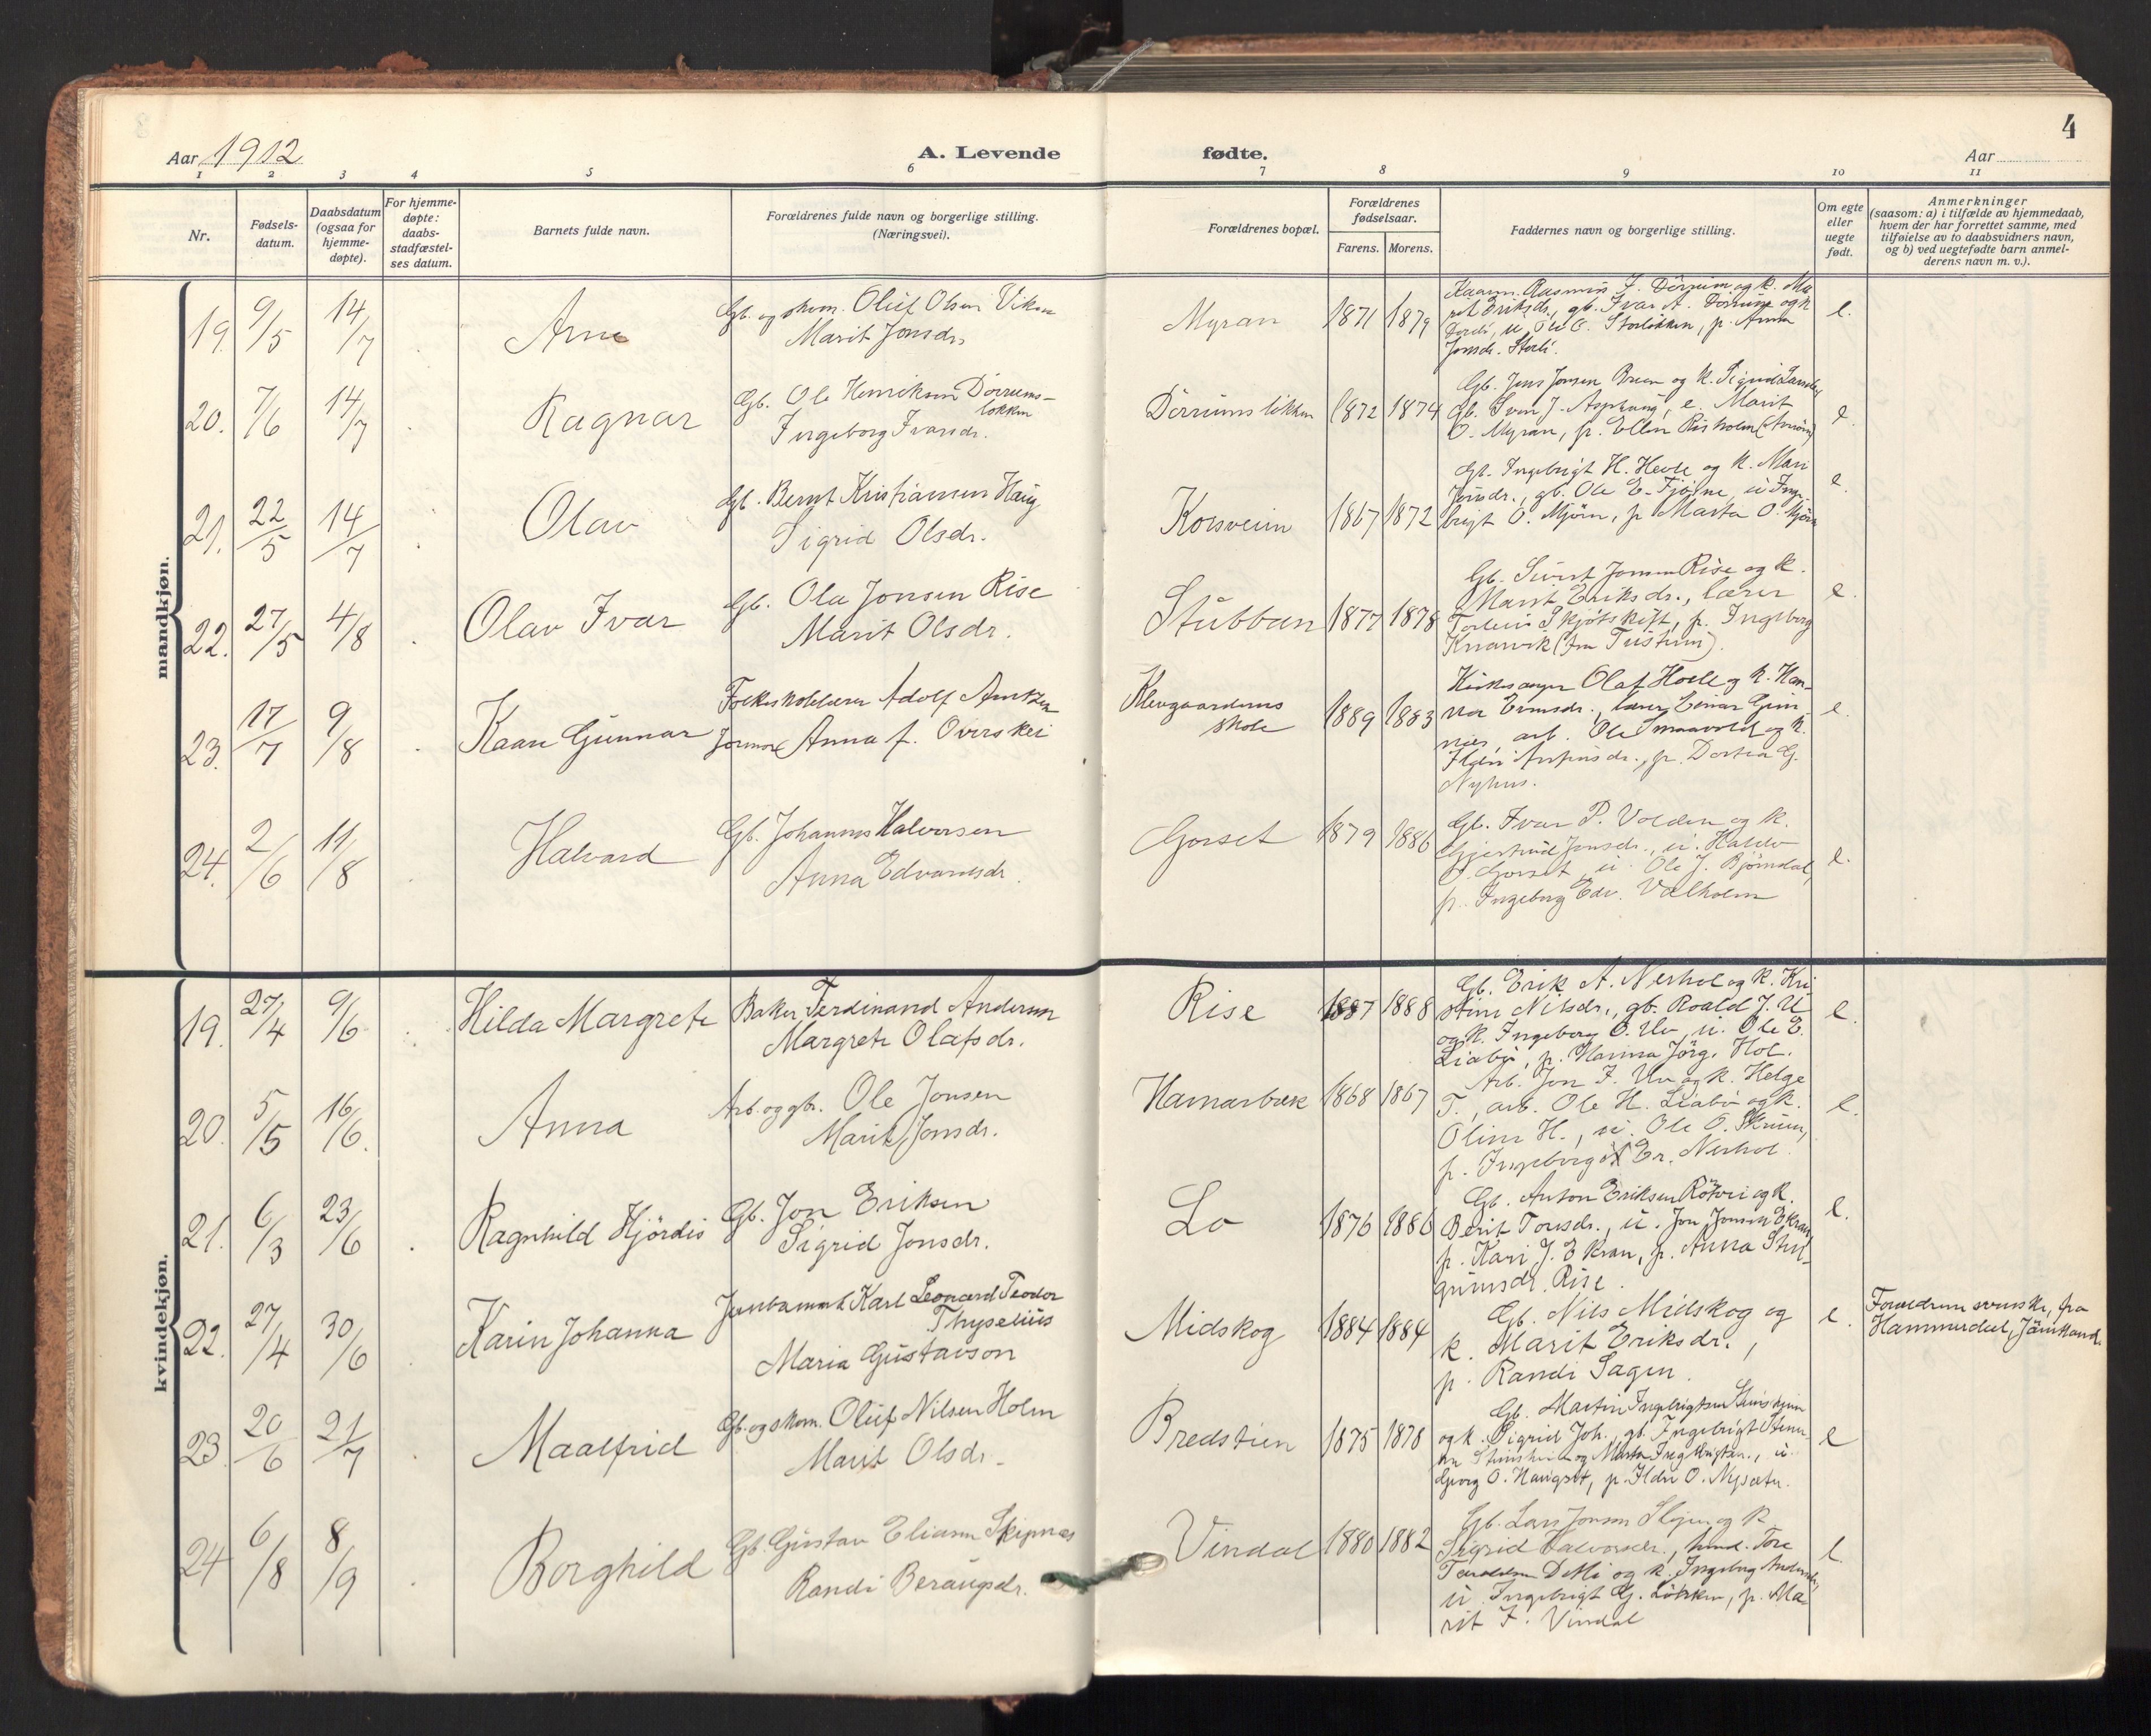 4
Aar 1912
A. Levende
fødte.
Aar
1 2 3 4 5 6 7 8 9 10 11
Nr.
Fødsels-
datum.
Daabsdatum
(ogsaa for
hjemme-
døpte).
For hjemme-
døpte:
daabs-
stadfæstel-
ses datum.
Barnets fulde navn.
Forældrenes fulde navn og borgerlige stilling.
(Næringsvei).
Forældrenes bopæl.
Forældrenes
fødselsaar.
Farens. Morens.
Faddernes navn og borgerlige stilling.
Om egte
eller
uegte
født.
Anmerkninger
(saasom: a) i tilfælde av hjemmedaab,
hvem der har forrettet samme, med
tilføielse av to daabsvidners navn,
og b) ved uegtefødte barn anmel-
derens navn m. v.).
mandkjøn.
19. 9/5 14/7 Arne
Gb. og skom. Oluf Olsen Viken
Marit Jonsdr.
Myran 1871 1879
Rasmus J. Dörrum og k. Ma-
rit Eriksdr., gb. Ivar A. Dörrum og k.
u. Ole O. Storlökken, p. Anna
Jonsdr. Storli.
e.
20. 7/6 14/7 Ragnar
Gb. Ole Henriksen Dörrums-
lökken
Ingeborg Ivarsdr.
Dörrumslökken 1872 1874
Gb. Jens Jonsen Breen og k. Sigrid Larsdr.,
gb. Sven J. Asphaug, e. Marit
O. Myran, p. Ellen Risholm
e.
21. 22/5 14/7 Olav
Gb. Bernt Kristiansen Haug
Sigrid Olsdr.
Korsveien 1867 1872
Gb. Ingebrigt H. Hevle og k. Mari
Jonsdr., gb. Ole E. Fjösne, u. Inge-
brigt O. Mjöen, p. Marta O. Mjöen
e.
22. 27/5 4/8 Olav Ivar
Gb. Ola Jonsen Rise
Marit Olsdr.
Stubban 1877 1878
Gb. Sivert Jonsen Rise og k.
Marit Eriksdr., lærer
Torleiv Skjötskift, p. Ingeborg
Knarvik (fra Tustern).
e.
23. 17/7 9/8 Kaare Gunnar
Folkeskolelærer Adolf Arntzen
Jormor Anna f. Overskei
Klevgaardens
skole 1889 1883
Kirkesanger Olaf Hoel og k. Han-
na lærer Einar Grin-
arb. Ole Smaavold og k.
Ildri p. Dortea G.
Nyhus.
e.
24. 2/6 11/8 Halvard
Gb. Johannes Halvorsen
Anna Edvardsdr.
Gorset 1879 1886
Gb. Ivar P. Volden og k.
Gjertrud Jonsdr., u. Haldo
J. Gorset, u. Ole J. Björndal,
p. Ingeborg Edv. Vælholm
e.
kvindekjøn.
19. 27/4 9/6 Hilda Margrete
Baker Ferdinand Andersen
Margrete Olafsdr.
Rise 1887 1888
Gb. Erik A. Nerhol og k. Kri-
stine Nilsdr., gb. Roald J. U
og k. Ingeborg O. Uv, u. Ole E.
Liabö, p. Hanna Jörg. Hol.
e.
20. 5/5 16/6. Anna
Arb. og gbr. Ole Jonsen
Marit Jonsdr.
Hamarbæk 1868 1867
Arb. Jon F. Uv og k. Helge
T., arb. Ole H. Liabö og k.
Oline H., u. Ole O. Skuun,
p. Ingeborg Er. Nerhol.
e.
21. 6/3 23/6 Ragnhild Hjördis
Gb. Jon Eriksen
Sigrid Jonsdr.
Lo 1876 1886
Gb. Anton Eriksen Rötvei og k.
Berit Tomsdr., u. Jon Jonsen Ekran,
p. Kari J. Ekran, p. Anna Stein-
grimsdr. Rise.
e.
22. 27/4 30/6 Karin Johanna
Karl Leonard Teodor
Thyselius
Maria Gustavson
Midskog 1884 1884
Gb. Nils Midskog og
k. Marit Eriksdr.,
p. Randi Sagen.
e.
Forældrene svenske, fra
Hammerdal, Jämtland.
23. 20/6 21/7 Maalfrid
Gb. og skom. Oluf Nilsen Holm
Marit Olsdr.
Bredstien 1875 1878
Gb. Martin Ingebrigtsen Stenshjem
og k. Sigrid Joh., gb. Ingebrigt
og Marta u.
Georg O. Haugset, p. Ildri O. Nysæter.
e
24 6/8 8/9 Borghild
Gb. Gustav Eliasen Skipnes
Randi Beraugsdr.
Vindal 1880 1882
Gb. Lars Jonsen og k.
Sigrid Halvorsdr., Tore
og k. Ingeborg Andersdr.,
u. Ingebrigt G. Lökken, p. Ma-
rit F. Vindal
e.